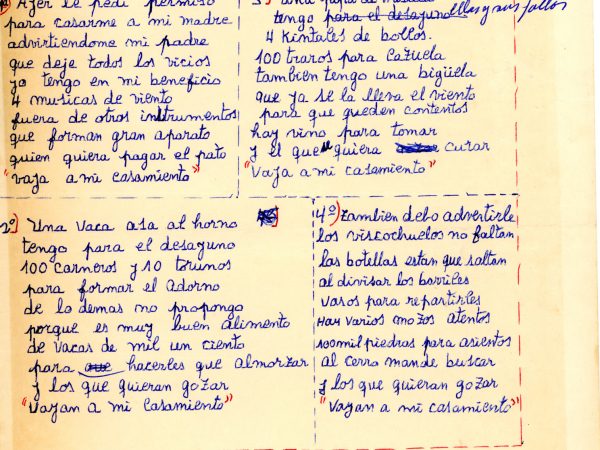 1º) Ayer le pedi permiso
para casarme a mi madre
advirtiendome mi padre
que deje todos los vicios
yo tengo en mi beneficio
4 musicas de viento
fuera de otros instrumentos
que forman gran aparato
quien quiera pagar el pato
"vaja a mi casamiento"
2º) Una vaca asa al horno
tengo para el desayuno
100 carneros y 10 torunos
para formar el adorno
de lo demas no propongo
porque es muy buen alimento
de vacas de mil un ciento
para hacerles que almorzar
y los que quieran gozar
"vayan a mi casamiento"
3º)
tengo para el desayuno ellas y sus pollos
4 kintales de bollos.
100 traros para cazuela
tambien tengo una bigüela
que ya se la lleva el viento
para que queden contentos
hay vino para tomar
y el que quiera curar
"vaja a mi casamiento"
4º) Tambien debo advertirle
los viscochuelos no faltan
las botellas estan que saltan
al divisar los barriles
vasos para repartirles
Hay varios mozos atentos
100 mil piedras para asientos
al cerro mande buscar
y los que quieran gozar
"vayan a mi casamiento"